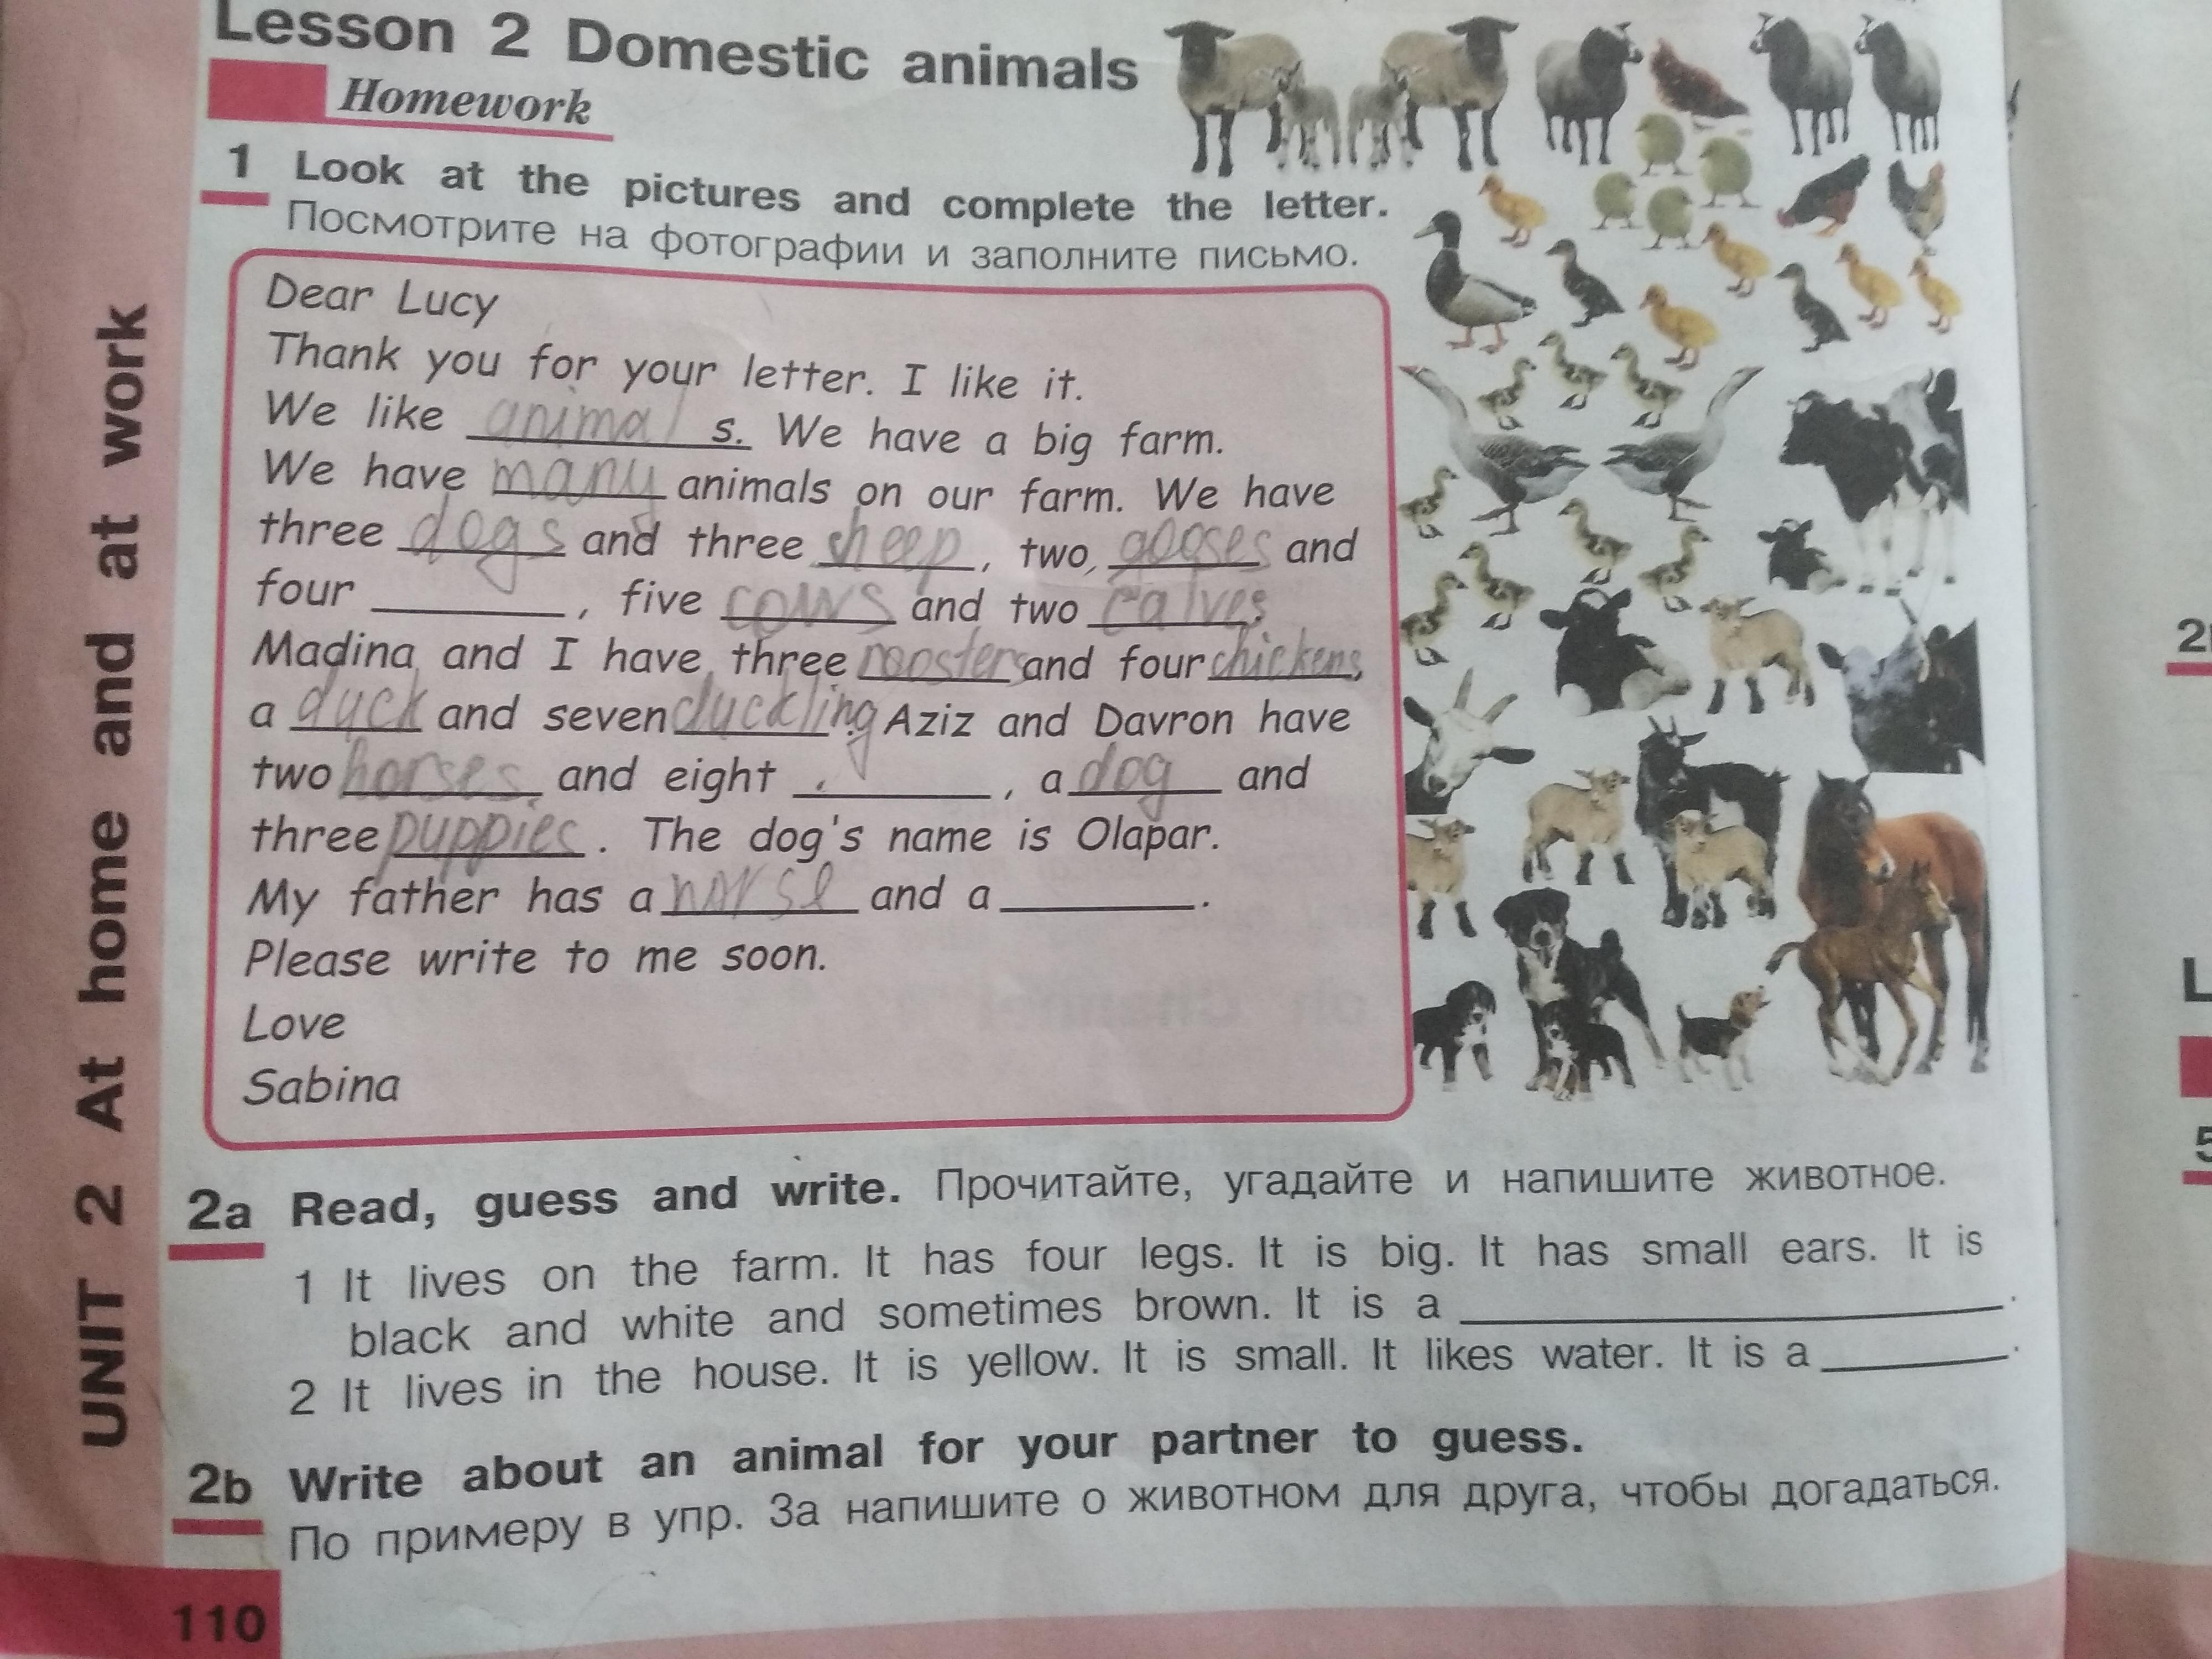 Lesson 2 Domestic animals
Homework
1 Look at the pictures and complete the letter.
Посмотрите на фотографии и заполните письмо.
Dear Lucy
Thank you for your letter. I like it.
We like animal s. We have a big farm.
We have many animals on our farm. We have
three dogs and three sheep, two, gooses and
four ________, five cows and two calves.
Madina and I have three roosters and four chickens,
a duck and seven duckling. Aziz and Davron have
two horses and eight ________, a dog and
three puppies. The dog's name is Olapar.
My father has a horse and a ________.
Please write to me soon.
Love
Sabina
2a Read, guess and write. Прочитайте, угадайте и напишите животное.
1 It lives on the farm. It has four legs. It is big. It has small ears. It is
black and white and sometimes brown. It is a ________.
2 It lives in the house. It is yellow. It is small. It likes water. It is a ________.
2b Write about an animal for your partner to guess.
По примеру в упр. 3а напишите о животном для друга, чтобы догадаться.
UNIT 2 At home and at work
110